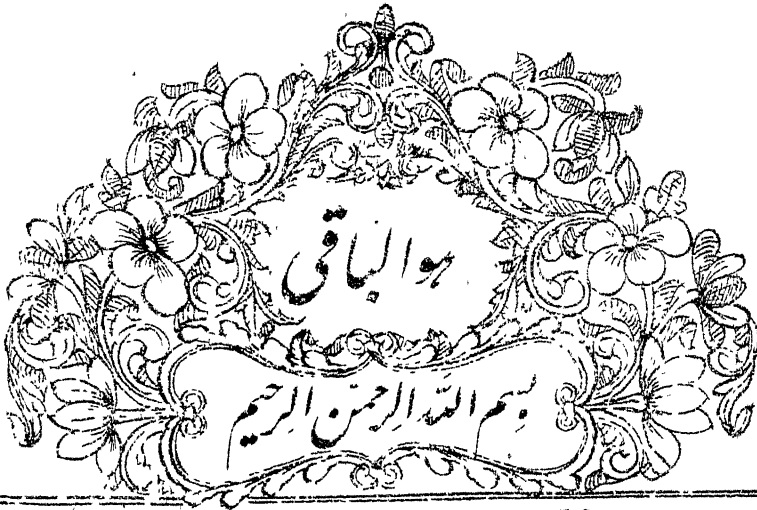 ہوالباقی
بسم اللہ الرحمن الرحیم